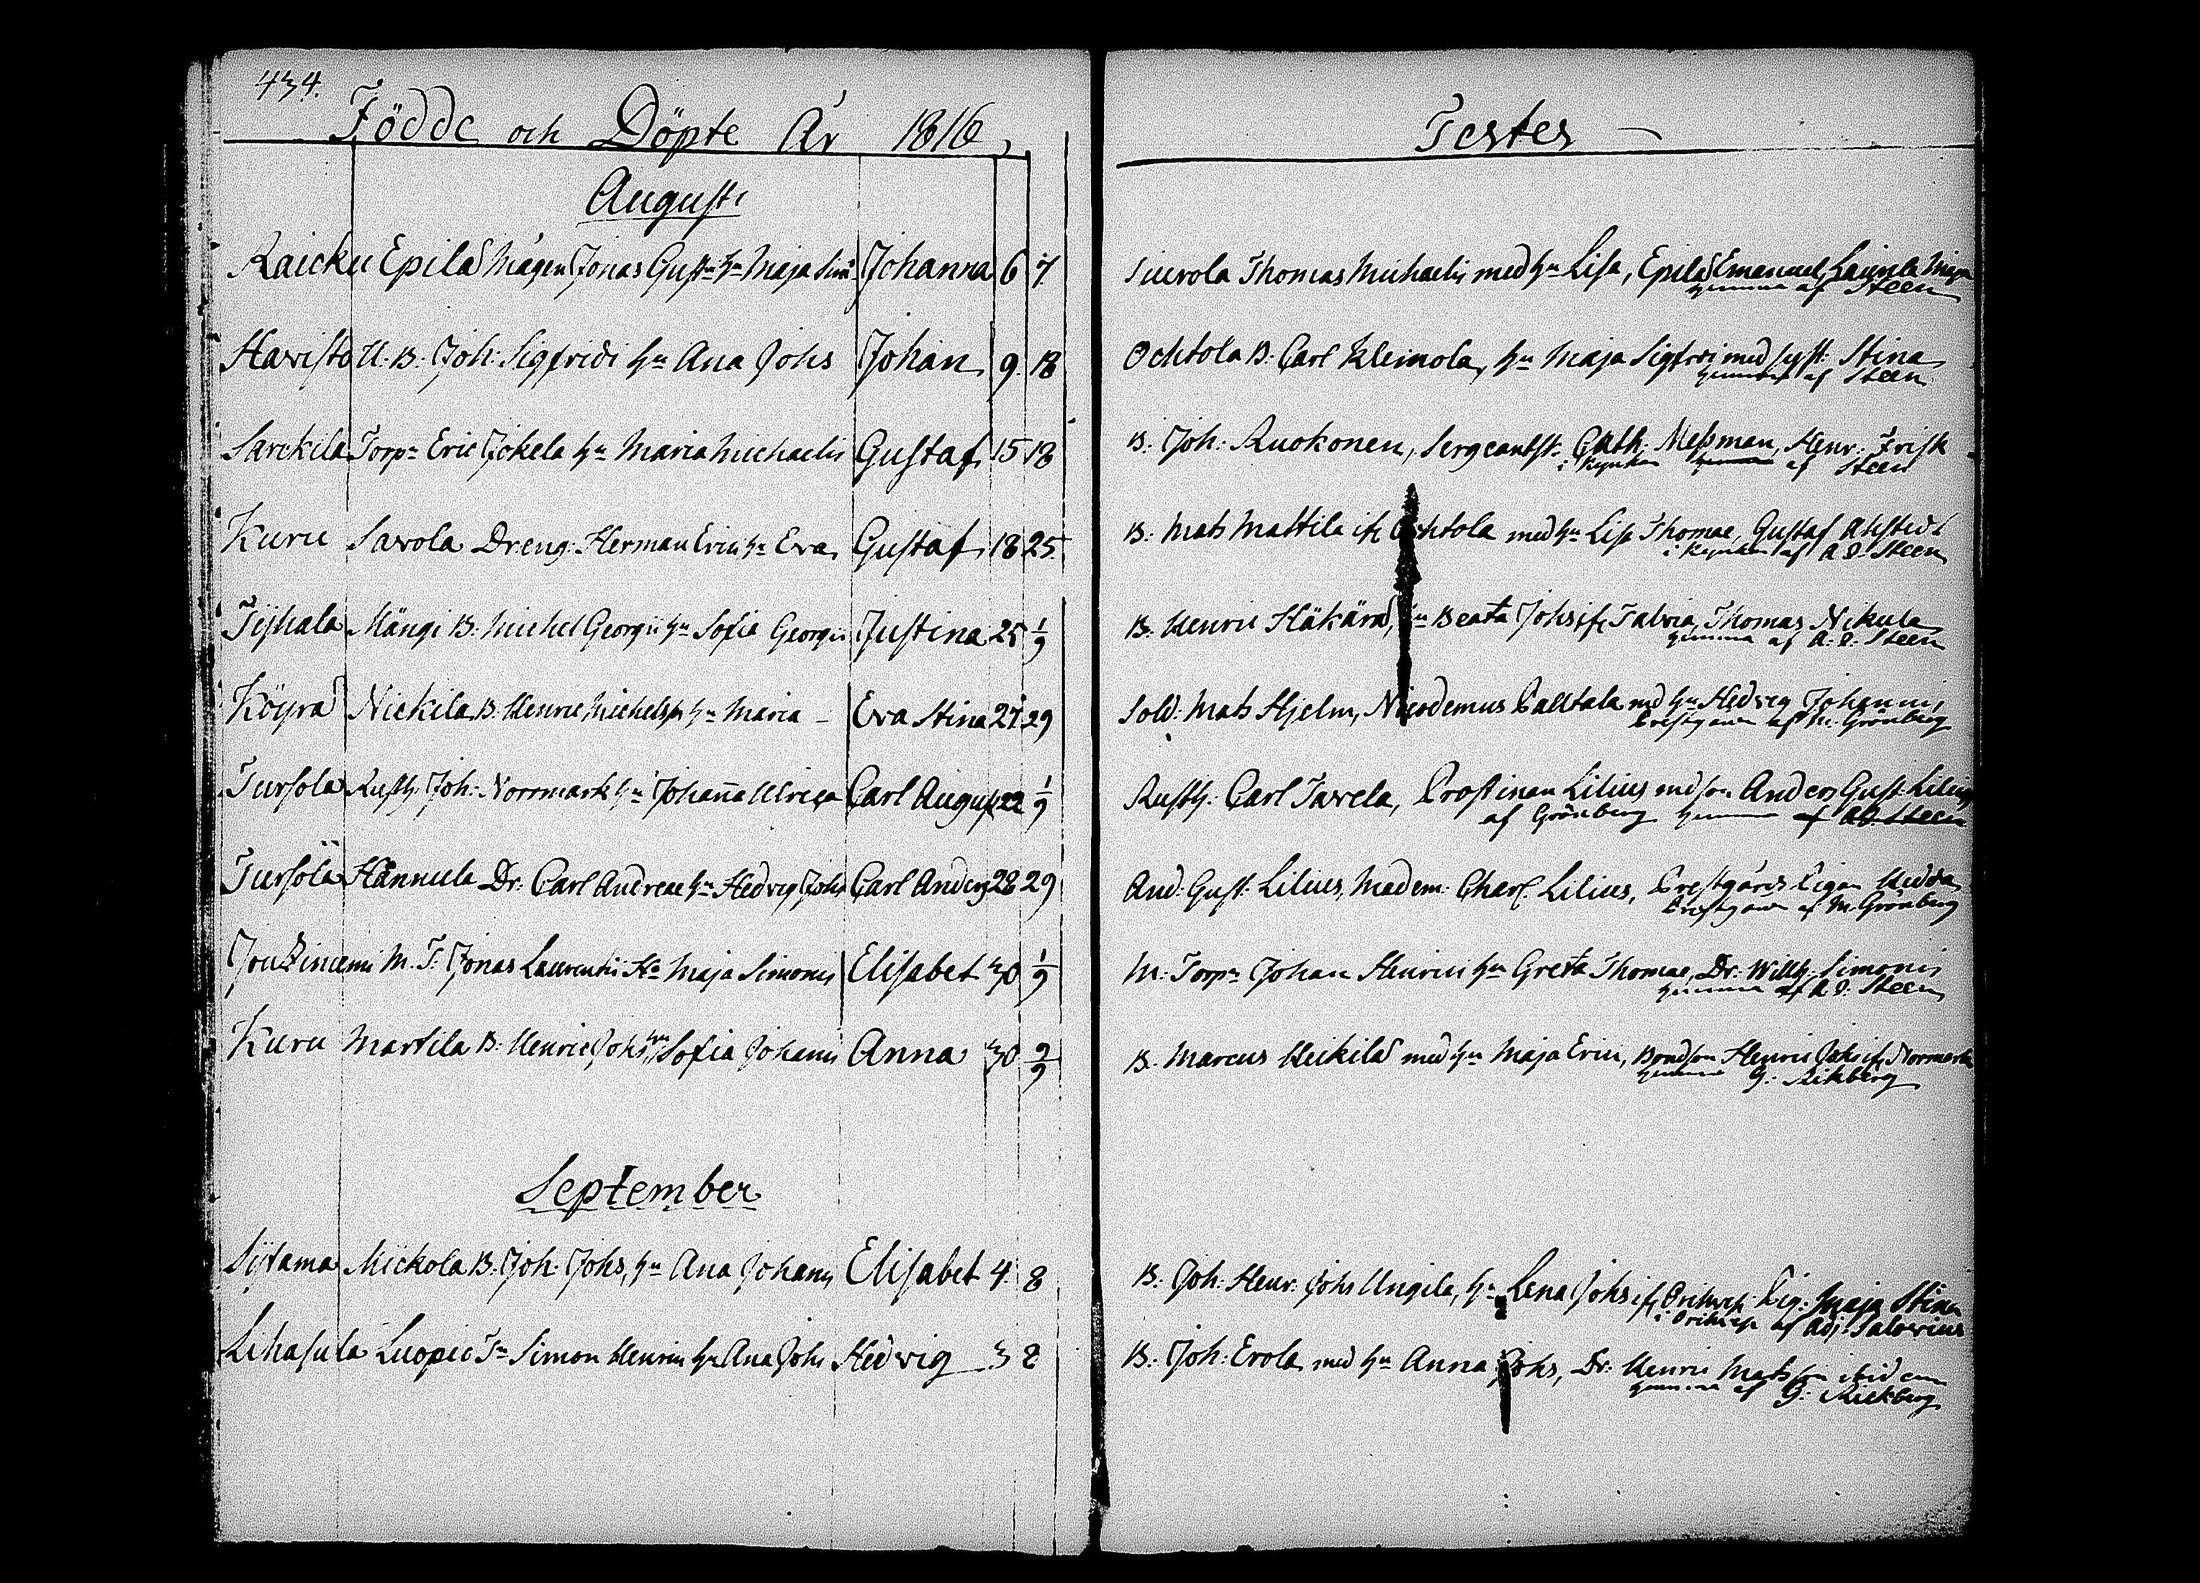 434.
Födde och Döpte År 1816,
Augusti
Raicku Epilä Mågen Jonas Gustn hu Maja Sim: Johanna 6 7
Havisto U. B. Joh: Sigfridi hu Ana Johs Johan 9 18
Sarckila Torpn Eric Jokela hu Maria Michaelis Gustaf 15 18
Kuru Savola Dreng: Herman Erici hu Eva Gustaf 18 25
Tijhala Mängi B. Michel Georgii hu Sofia Georgii Justina 25 1/9
Köyrä Nickila B. Henric Michelss. hu Maria – Eva Stina 27 29
Tursola Rusth. Joh: Norrmark hu Johanna Ulrica Carl August 22 1/9
Tursola Hannula Dr: Carl Andreae hu Hedvig Johs Carl Anders 28 29
Jonas Laurentii Hu Maja Simonis Elisabet 30 1/9
Kuru Martila B. Henric Johs hu Sofia Johanis Anna 30 9/9
September
Mickola B. Joh: Johs, hu Ana Johanis Elisabet 4 8
Lihasula Luopio Tn Simon Henrici hu Ana Johs Hedvig 3 8
Testes –
Thomas Michaelis med hu Lisa, Epilä Emanuel, Laurila Maja
hemma af Steen
Ochtola B. Carl Kleimola, hu Maja Sigfrei med syst: Stina
hemma af Steen
B. Joh: Ruokonen, Sergeantsk. Cath: Messman, Henr: Frisk
i kyrkan hemma af Steen
B. Mats Mattila ifr Ochtola med hu Lisa Thomae, Gustaf Ahlstedt
i kyrkan af A. J. Steen
B. Henric Häkärä, hu Beata Johs ifr Talvia, Thomas Nikula
hemma af A. J. Steen
Sold: Mats Hjelm, Nicodemus Palltala med hu Hedvig Johannis
Prestgården af M. Grönberg
Rusth. Carl Tavela, Prostinnan Lilius med son Anders Gust: Lilius
af Grönberg hemma af A. J. Steen
And: Gust: Lilius, Madem: Charl. Lilius, Prestgårds Pigan Hedda
Prestgården af M. Grönberg
M. Torpn Johan Henrici hu Greta Thomae, Dr: Willh. Simonis
hemma af A. J. Steen
B. Marcus Heikilä med hu Maja Erici, Bondson Henric Johs ifr Norrmark
hemma G. Rikberg
B. Joh: Henr: Johs Ungila, hu Lena Johs ifr Pig: Maja Stina
af Adj: Salovius
B. Joh: Erola med hu Anna Johs, Dr: Henric Matsson ibidem
hemma af G. Rickberg